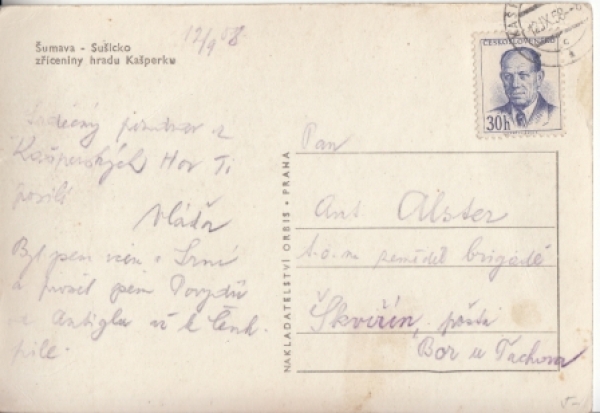 Šumava - Sušicko
zříceniny hradu Kašperku
12/9 58
KAŠP
12.IX.58-
ČESKOSLOVENSKO
30h
Srdečný pozdrav z
Kašperských Hor Ti
posílá
Vláďa
Byl jsem i v Srní
a prošel jsem Povydří
na Antigla až k Čenk.
pile.
NAKLADATELSTVÍ ORBIS • PRAHA
Pan
Ant. Alster
t.č. na zeměděl. brigádě
Škviřín, pošta
Bor u Tachova
5-